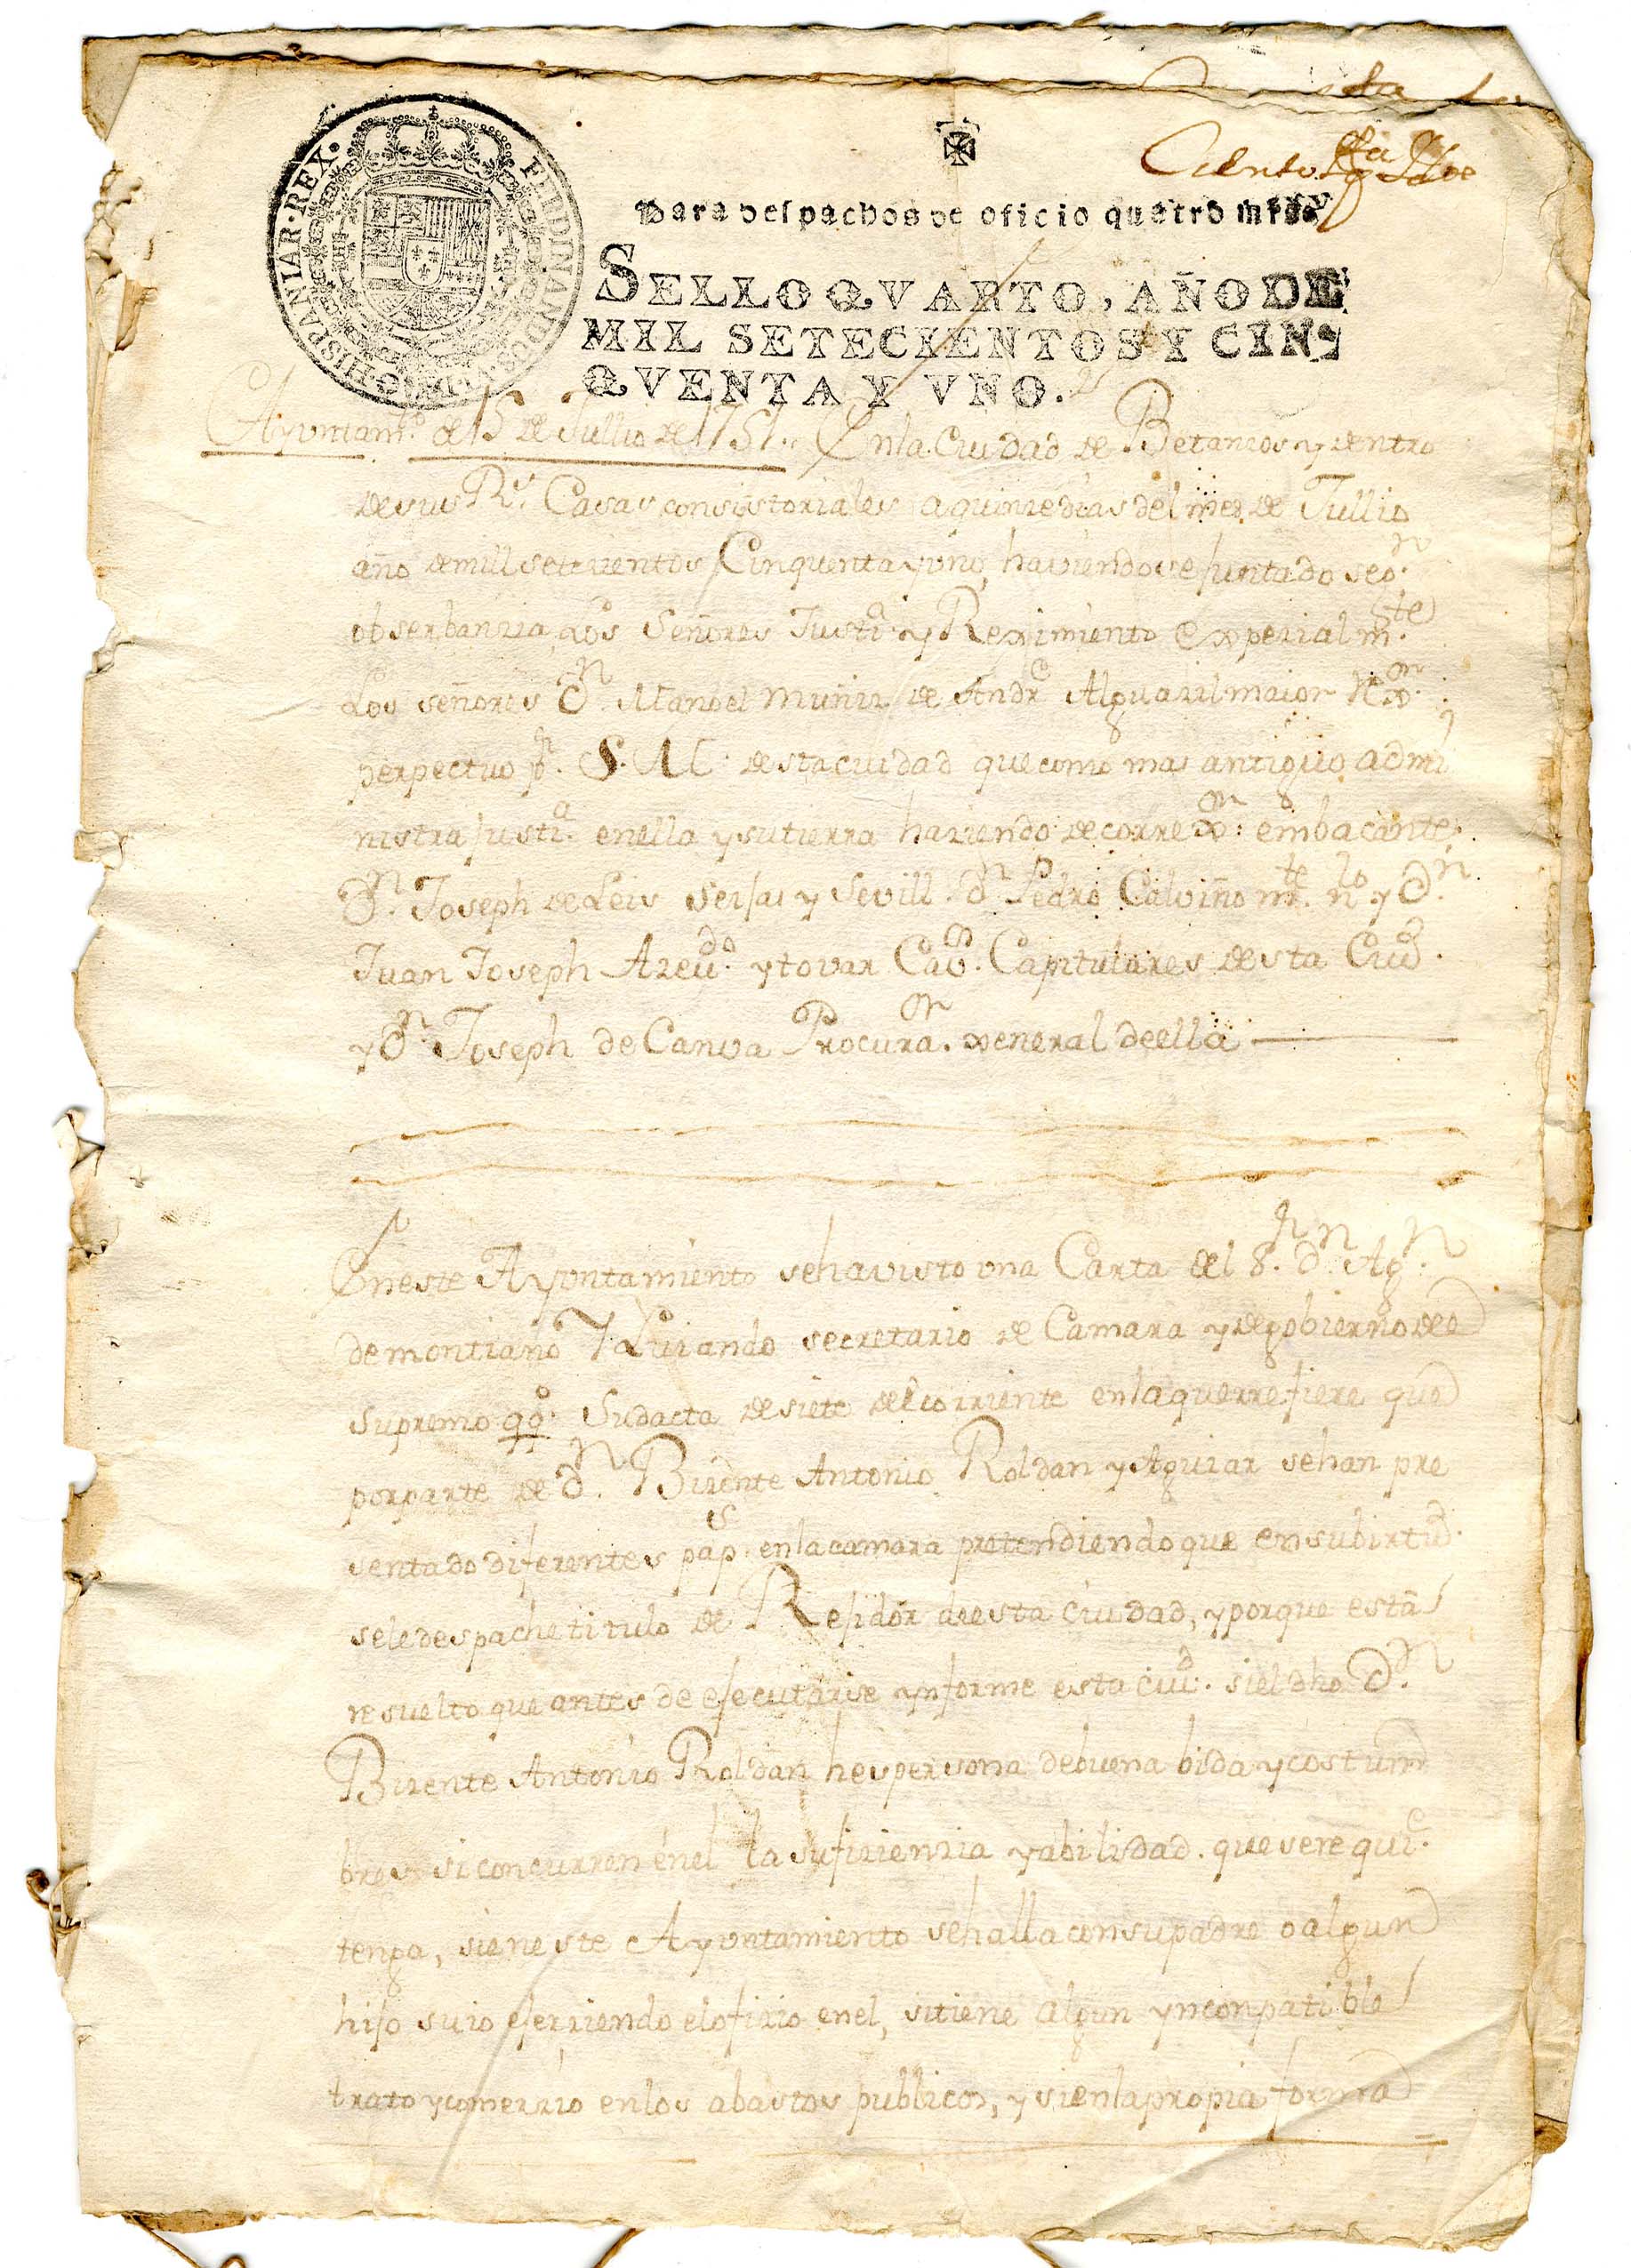 FERDINANDUS VI D G HISPANIAR REX
Ciento
Para despachos de oficio quatro mrs.
SELLO QVARTO, AÑO DE
MIL SETECIENTOS Y CIN-
QVENTA Y VNO.
Ayuntam.to de 15 de Jullio de 1751. Enla Ciudad de Betanzos y dentro
de sus R.s Casas consistoriales a quinze dias del mes de Jullio
año de mill setezientos Cinquenta y uno haviendose juntado seg.
obserbanzia Los Señores Justi.a y Reximiento Expezialm.te
Los señores D.n Manoel Muñiz de Andr.e Alguazil maior
perpectuo p.r S. M. desta ciudad que como mas antiguo admi
nistra justi.a en ella y su tierra haziendo de correx.or embacante,
D.n Joseph de Leis Seijas y Sevill. D.n Pedro Calviño y D.n
Juan Joseph Azeu.do y tovar Cav.s Capitulares desta Ciud.
y D.n Joseph de Canva Procura.or xeneral de ella
En este Ayuntamiento sehavisto una Carta del S.r D.n Ag.n
de montiano Y Luiando secretario de Camara y de gobierno de el
supremo qq.o Su dacta de siete del corriente en la que rrefiere que
por parte de D.n Bizente Antonio Roldan y Aguiar sehan pre
sentado diferentes pap.s en la camara pretendiendo que en su birtud.
sele despache titulo de Rejidor de esta ciudad, y porque está
resuelto que antes de ejecutarise ynforme esta ciu.d si el dho D.n
Bizente Antonio Roldan hes persona de buena bida y costum
bres si concurren en el la sufizienzia y abilidad que se requi.e
tenga, si en este Ayuntamiento sehalla con su padre o algun
hijo suio ejerziendo el ofizio en el, si tiene algun ynconpatible
trato y comerzio en los abastos publicos, y si en la propia forma